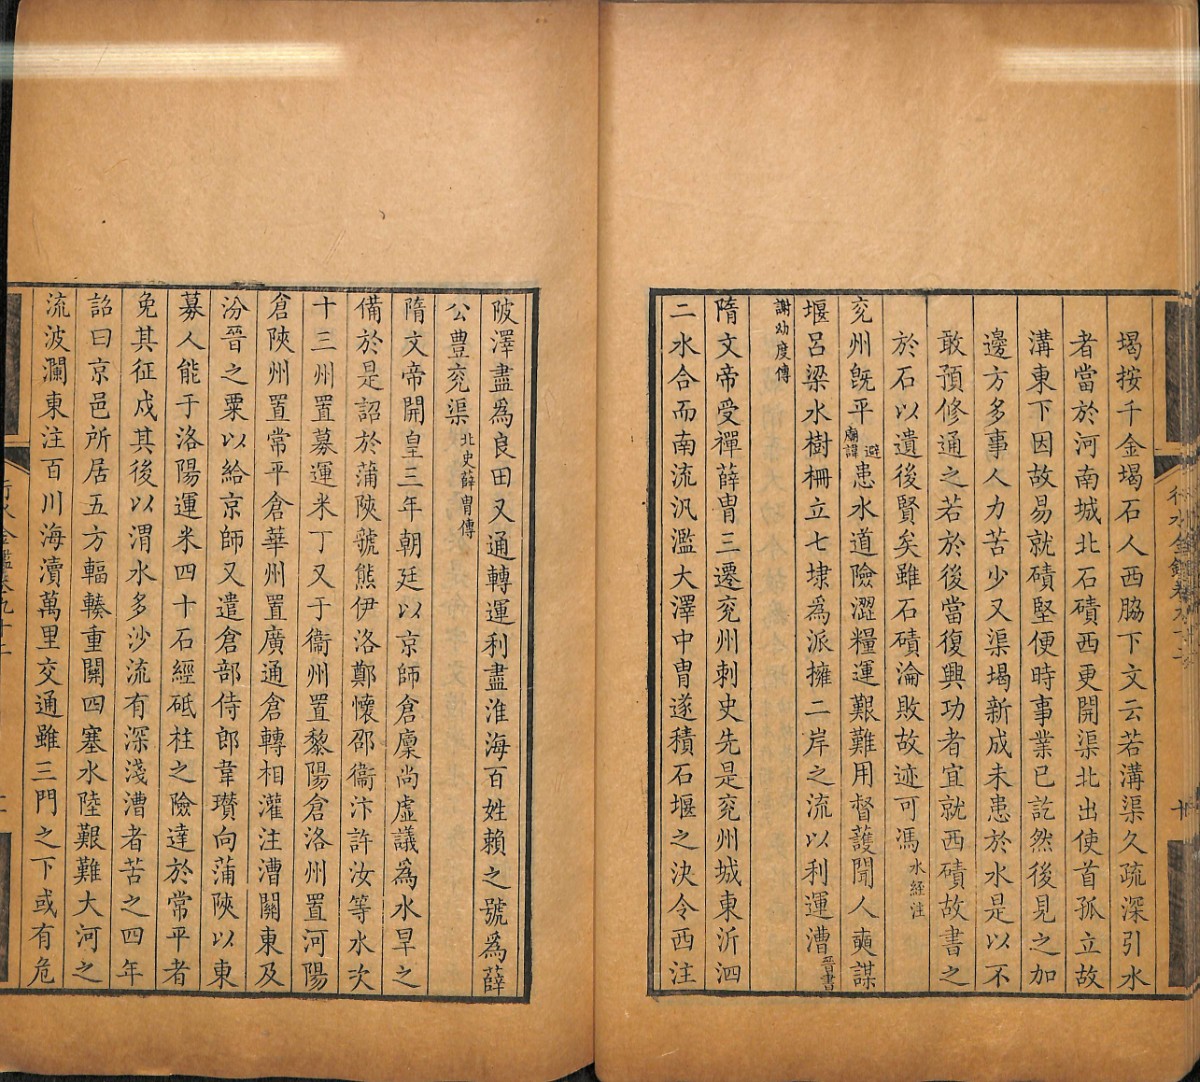 堨按千金堨石人西脇下文云若溝渠久疏深引水
者當於河南城北石磧西更開渠北出使首孤立故
溝東下因故易就磧堅便時事業已訖然後見之加
邊方多事人力苦少又渠堨新成未患於水是以不
敢預修通之若於後當復興功者宜就西磧故書之
於石以遺後賢矣雖石磧淪敗故迹可馮水經注
兖州旣平避廟諱患水道險澀糧運艱難用督護聞人奭謀
堰呂梁水樹柵立七埭爲派擁二岸之流以利運漕晉書
謝幼度傳
隋文帝受禪薛胄三遷兖州刺史先是兖州城東沂泗
二水合而南流汎濫大澤中胄遂積石堰之決令西注
陂澤盡爲良田又通轉運利盡淮海百姓賴之號爲薛
公豐兖渠北史薛胄傳
隋文帝開皇三年朝廷以京師倉廩尚虛議爲水旱之
備於是詔於蒲陝虢熊伊洛鄭懷邵衞汴許汝等水次
十三州置募運米丁又于衞州置黎陽倉洛州置河陽
倉陝州置常平倉華州置廣通倉轉相灌注漕關東及
汾晉之粟以給京師又遣倉部侍郎韋瓚向蒲陝以東
募人能于洛陽運米四十石經砥柱之險達於常平者
免其征戍其後以渭水多沙流有深淺漕者苦之四年
詔曰京邑所居五方輻輳重關四塞水陸艱難大河之
流波瀾東注百川海瀆萬里交通雖三門之下或有危